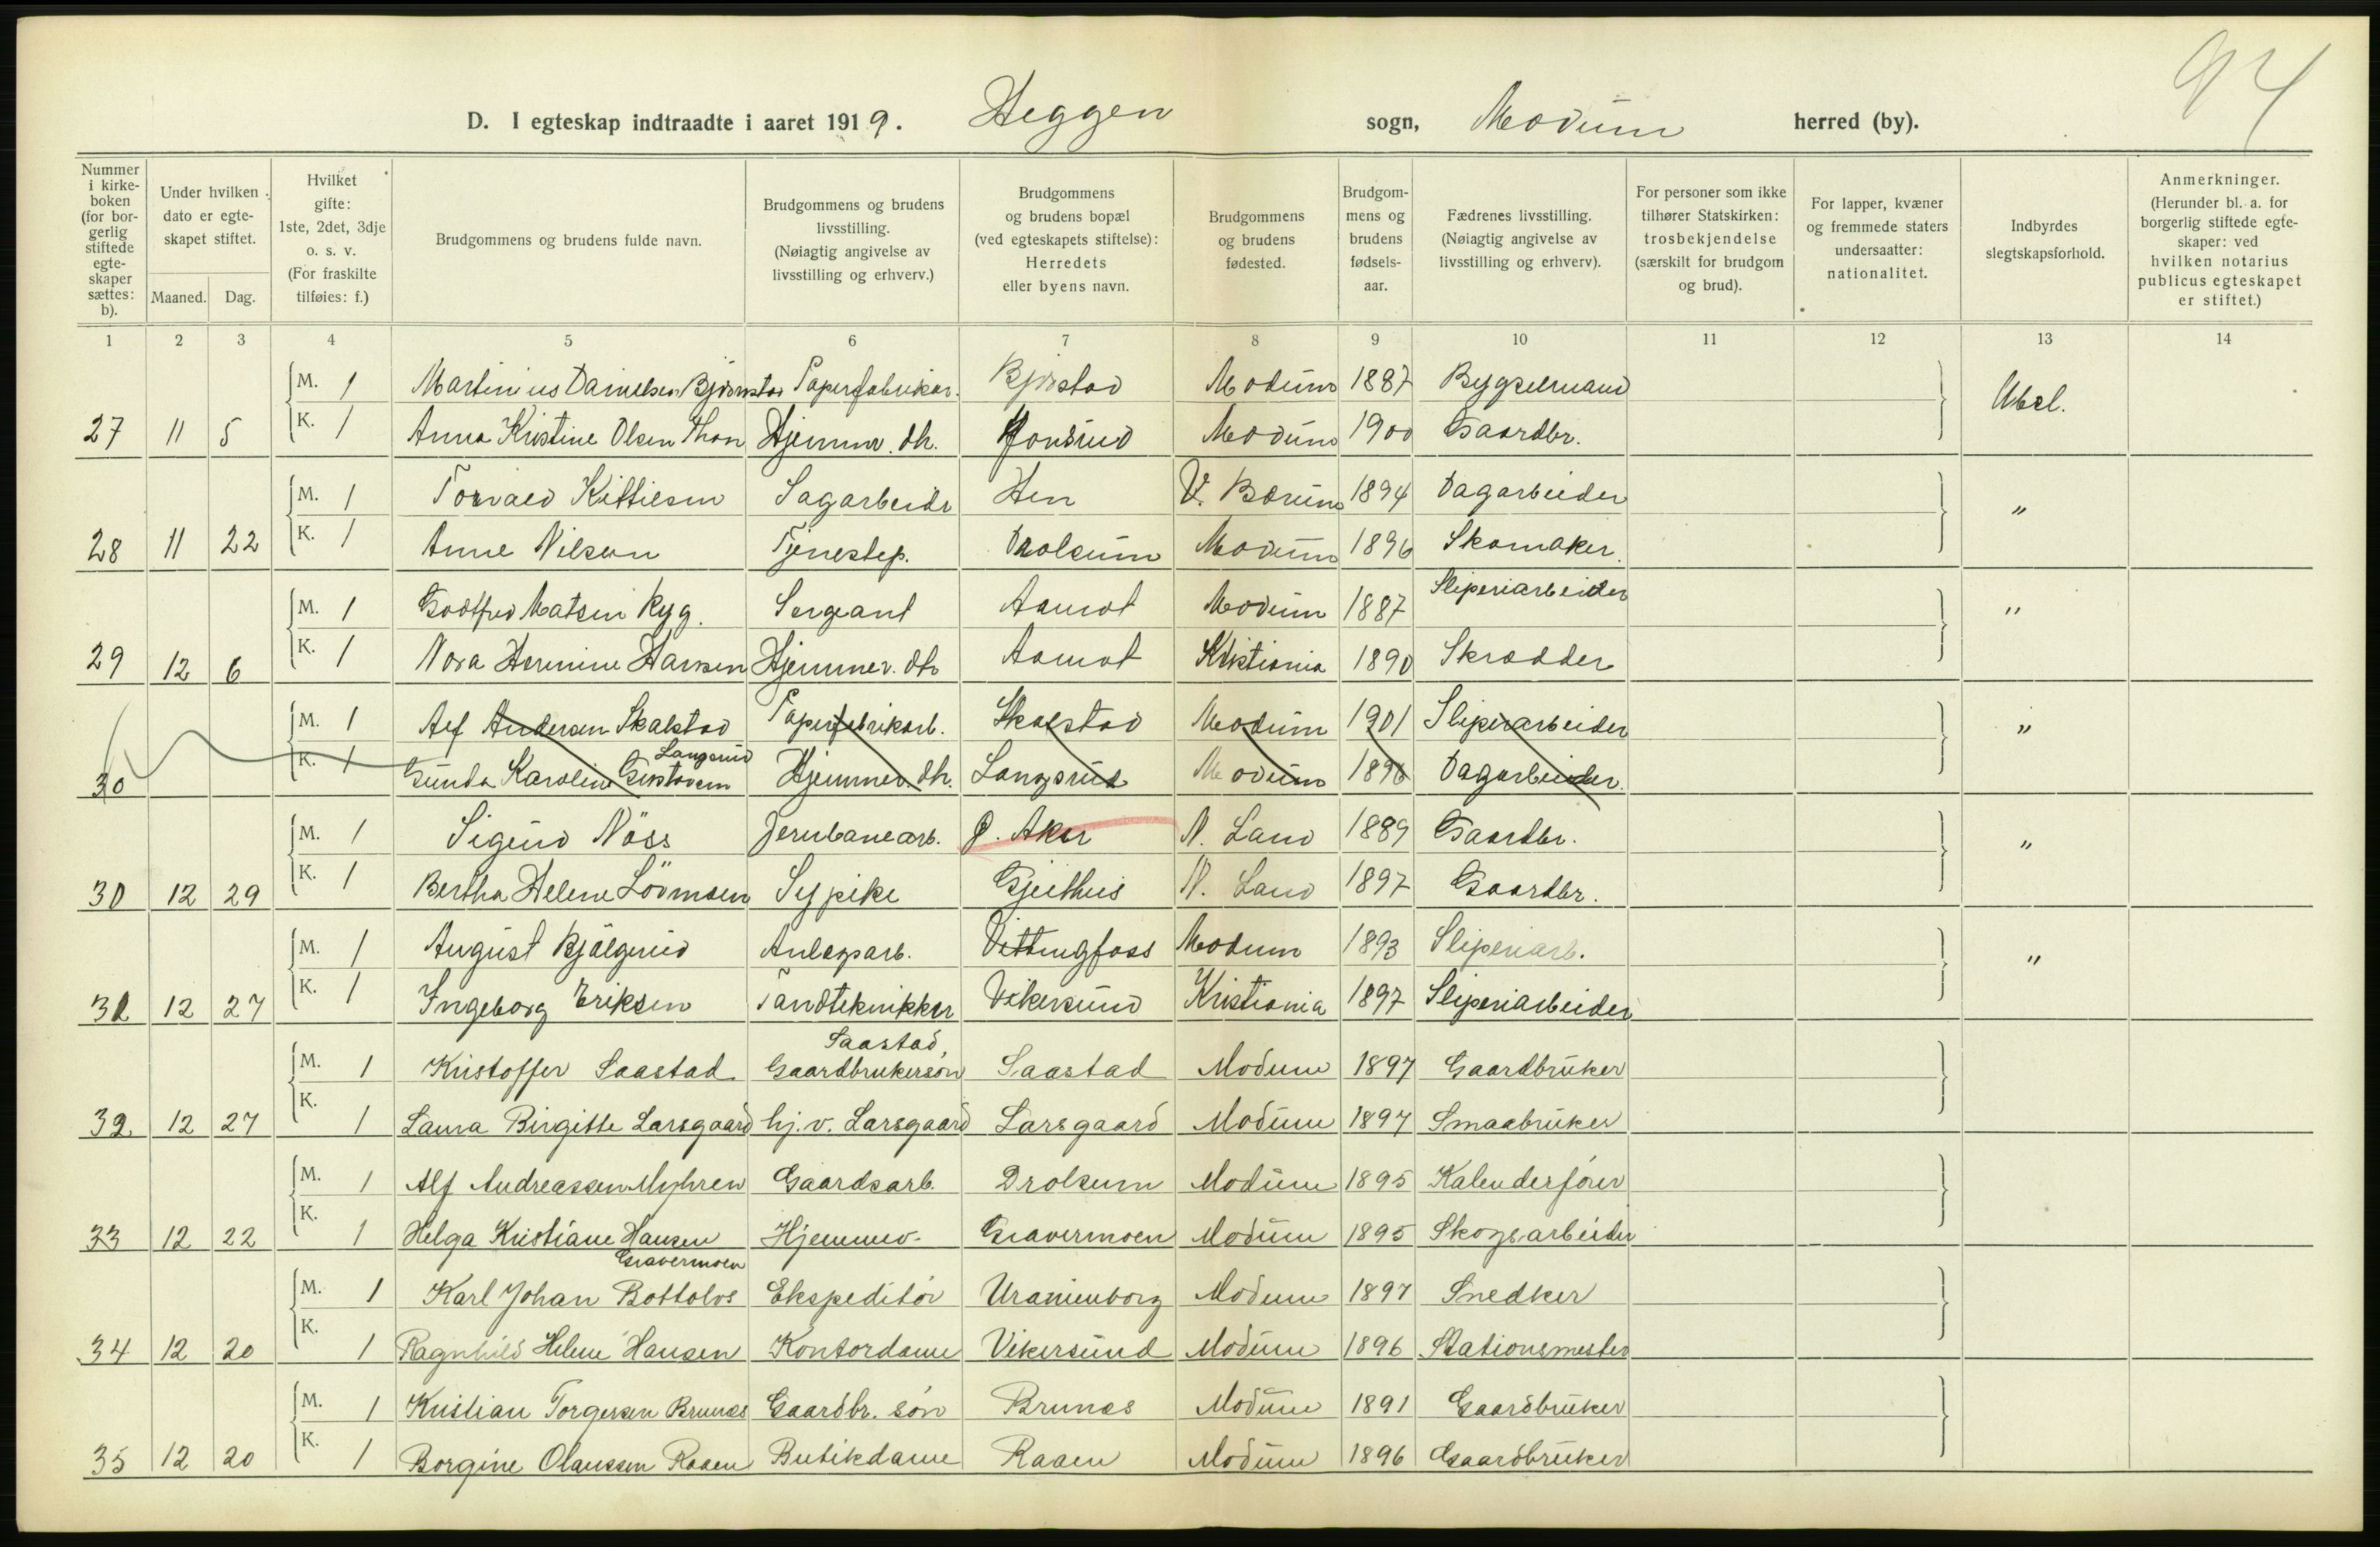 94
D. I egteskap indtraadte i aaret 1919. Heggen sogn, Modum herred (by).
Nummer i kirkeboken (for borgerlig stiftede egteskaper sættes: b).
Under hvilken dato er egteskapet stiftet. Maaned. Dag.
Hvilket gifte: 1ste, 2det, 3dje o. s. v. (For fraskilte tilføies: f.)
Brudgommens og brudens fulde navn.
Brudgommens og brudens livsstilling. (Nøiagtig angivelse av livsstilling og erhverv.)
Brudgommens og brudens bopæl (ved egteskapets stiftelse): Herredets eller byens navn.
Brudgommens og brudens fødested.
Brudgommens og brudens fødselsaar.
Fædrenes livsstilling. (Nøiagtig angivelse av livsstilling og erhverv).
For personer som ikke tilhører Statskirken: trosbekjendelse (særskilt for brudgom og brud).
For lapper, kvæner og fremmede staters undersaatter: nationalitet.
Indbyrdes slegtskapsforhold.
Anmerkninger. (Herunder bl. a. for borgerlig stiftede egteskaper: ved hvilken notarius publicus egteskapet er stiftet.)
1 2 3 4 5 6 7 8 9 10 11 12 13 14
M. 1 Martinius Danielsen Bjørnstad Papirfabrikar. Modum 1887 Bygselmand Ubsl.
27 11 5 K. 1 Anna Kristine Olsen Thon Hjemmev. dtr. Modum 1900 Gaardbr.
M. 1 Torvald Kittilsen Sagarbeider Hen V. Bærum 1894 Dagarbeider "
28 11 22 K. 1 Anne Nilsen Tjenestep. Drolsum Modum 1896 Skomaker.
M. 1 Godtfred Matsen Ryg. Sergeant Aamot Modum 1887 Sliperiarbeider "
29 12 6 K. 1 Nora Hermine Hansen Hjemmev. dtr Aamot Kristiania 1890 Skrædder
M. 1 Alf Andersen Skalstad Papirfabrikarb. Skalstad Modum 1901 Sliperiarbeider "
Langsrud
30 K. 1 Gunda Karoline Gustavsen Hjemmev. dtr. Langsrud Modum 1896 Dagarbeider.
M. 1 Sigurd Nöss Jernbanearb. Ø. Aker N. Land 1889 Gaardbr. "
30 12 29 K. 1 Bertha Helene Lövmoen Sypike Gjeithus N. Land 1897 Gaardbr.
M. 1 August Bjölgerud Anlegsarb. Vittingfoss Modum 1893 Sliperiarb. "
31 12 27 K. 1 Ingeborg Eriksen Tandtekniker Vikersund Kristiania 1897 Sliperiarbeider
Saastad,
M. 1 Kristoffer Saastad Gaardbrukersøn Saastad Modum 1897 Gaardbruker
32 12 27 K. 1 Laura Birgitte Larsgaard hj. v. Larsgaard Larsgaard Modum 1897 Smaabruker
M. 1 Alf Andreassen Myhren Gaardsarb. Drolsum Modum 1895 Kalenderfører
33 12 22 K. 1 Helga Kristiane Hansen Hjemmev. Gravermoen Modum 1895 Skogsarbeider
Gravermoen
M. 1 Karl Johan Bottolvs Ekspeditör Uranienborg Modum 1897 Snedker
34 12 20 K. 1 Ragnhild Helene Hansen Kontordame Vikersund Modum 1896 Stationsmester
M. 1 Kristian Torgersen Brunæs Gaardbr. søn Brunæs Modum 1891 Gaardbruker
35 12 20 K. 1 Borgine Olaussen Raaen Butikdame Raaen Modum 1896 Gaardbruker